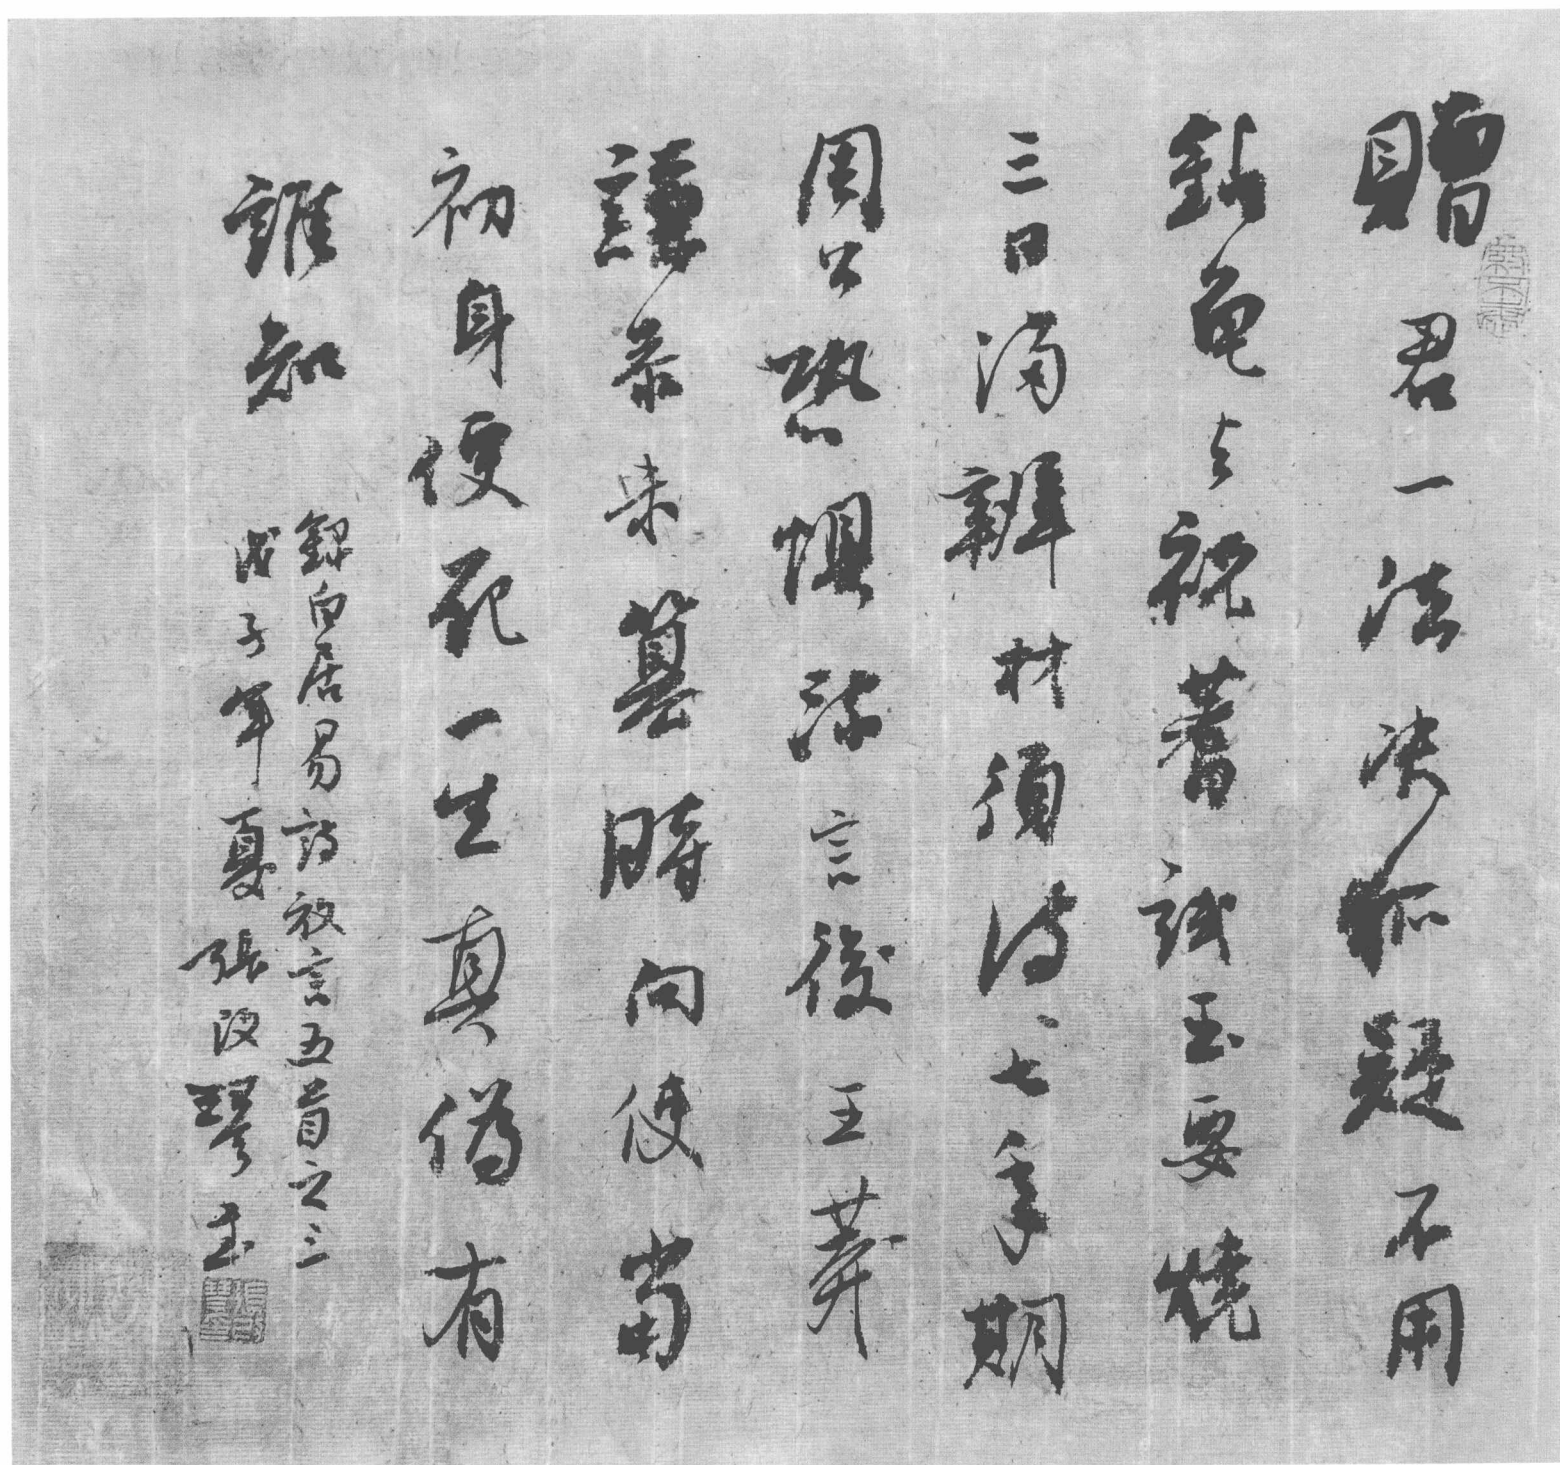 贈君一法决狐疑不用
鉆龜与祝蓍試玉要燒
三日滿辨材須待七年期
周公恐懼流言後王莽
謙恭未篡時向使當
初身便死一生真偽有
誰知
錄白居易詩放言五首之三
戊子年夏張改琴书